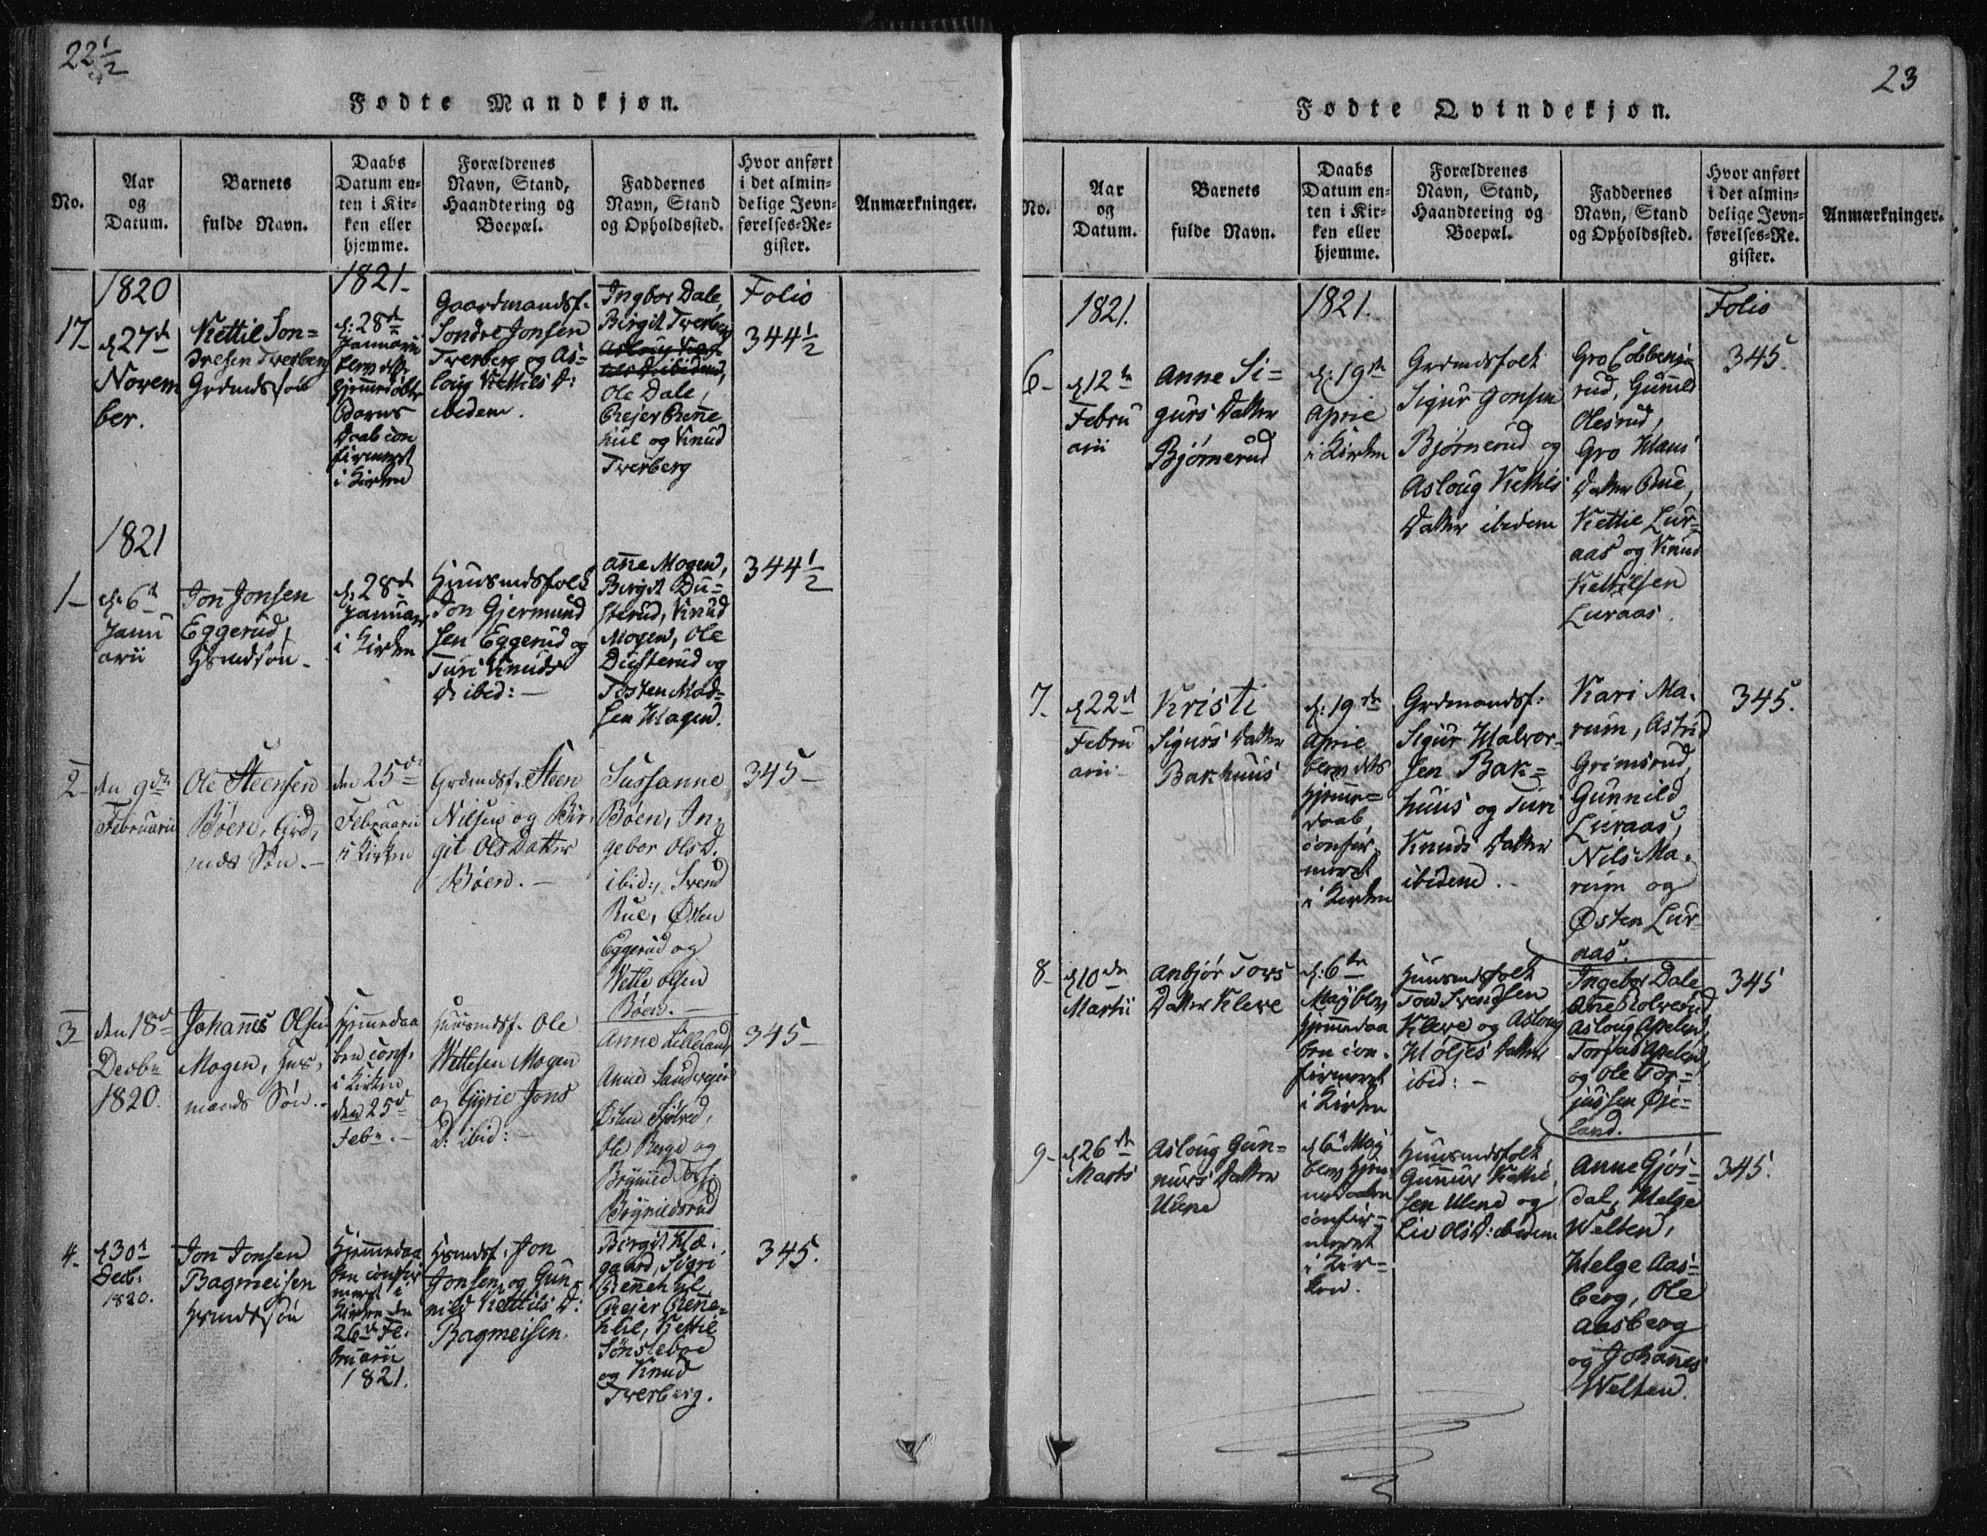 22 1/2
Fødte Mandkjøn.
No.
Aar
og
Datum.
Barnets
fulde Navn.
Daabs
Datum en-
ten i Kir-
ken eller
hjemme.
Forældrenes
Navn, Stand,
Haandtering og
Boepæl.
Faddernes
Navn, Stand
og Opholdssted.
Hvor anført
i det almin-
delige Jevn-
førelses-Re-
gister.
Anmærkninger.
17-
1820
d 27de
Novem
ber.
Kettil Son-
dresen Twerberg
Grdmdssøn
1821-
d: 28de
Januarii
blev dets
hjemmedøbte
Barns
Daab con
firmeret
i Kirken
Gaardmandsf.
Sondre Jonsen
Twerberg og As-
loug Kettils D:
ibidem.
Ingbor Dale,
Birgit Twerberg
Ole Dale,
Reier Renne
hul og Knud
Twerberg
Folio
344 1/2
1821
1-
d: 6te
Janu
arii
Jon Jonsen
Eggerud,
Hsmdsøn-
d: 28de
Januarii
i Kirken
Huusmdsfolk
Jon Gjermund
sen Eggerud og
Turi Knuds
D: ibid: -
Anne Mogen,
Birgit Du-
sterud, Knud
Mogen, Ole
Dusterud og
Tosten Mad-
sen Hagen.
344 1/2
2-
den 9de
Februarii
Ole Steensen
Bøen, Grd,
mds Søn. -
den 25de
Februarii
i Kirken
Grdmdsf. Steen
Nilsen og Bir-
git Ols Datter
Bøen. -
Sussanne
Bøen, In-
gebor Ols D.
ibid:, Svend
Rue, Østen
Eggerud og
Vetle Olsen
Bøen. -
345-
3-
den 18de
Decbr
1820.
Johannes Olsen
Mogen, Hus,
mands Søn. -
Hjemmedaa
ben conf.
i Kirken
den 25de
Febr. -
Huusmdsf. Ole
Wetlesen Mogen
og Gyrie Jons
D: ibid: -
Anne Lilleland,
Anne
Østen
Ole Berge og
Brynild
Brynildsrud
345-
4-
d 30te
Decb:
1820.
Jon Jonsen
Bagmeisen
Hsmdssøn
Hjemmedaa
ben confir
meret i
Kirken den
26de Fe.
bruarii
1821.
Hsmdsf. Jon
Jonsen og Gun-
nild Kettils D:
Bagmeisen.
Birgit
gaard, Sigri
Rennehul
Reier Renne-
hul, Kettil
Sønstebøe
og Knud
Twerberg.
345.
23
Fødte Qvindekjøn.
No.
Aar
og
Datum.
Barnets
fulde Navn.
Daabs
Datum en-
ten i Kir-
ken eller
hjemme.
Forældrenes
Navn, Stand,
Haandtering og
Boepæl.
Faddernes
Navn, Stand
og Opholdssted.
Hvor anført
i det almin-
delige Jevn-
førelses-Re.
gister.
Anmærkninger.
6-
1821.
d 12te
Febru
arii
Anne Si-
gurs Datter
Bjørnerud
1821.
d: 19de
April
i Kirken
Grdmdsfolk
Sigur Gonsen
Bjørnerud og
Asloug Kettils
Datter ibidem
Gro Cobbenje
rud, Gunnild
Olesrud,
Gro Hans
Datter Rue,
Kettil Lur-
aas og Knud
Kettilsen
Luraas.
Folio
345.
7-
d 22de
Febru
arii-
Kristi
Sigurs Datter
Bakhuus
d: 19de
April
blev dets
hjemme-
daab
confir,
meret
i Kirken
Grdmandsf:
Sigur Halvor-
sen Bak-
huus og Turi
Knuds Datter
ibidem. -
Kari Ma-
rum, Astrid
Grimsrud,
Gunnild
Luraas,
Nils Ma-
rum og
Østen Lur-
aas.
345.
8-
d 10de
Martii
Anbjør Tovs
Datter Kleve
d: 6te
May blev
hjemmedaa
ben con-
firmeret
i Kirken
Huusmdsfolk
Tov Svendsen
Kleve og Asloug
Høljes Datter
ibid: -
Ingebor Dale
Anne Rolverud
Asloug Apeland,
Torjus Apeland,
og Ole Tor-
jussen Øse-
land.
345
9-
d 26de
Marts
Asloug Gun-
nurs Datter
Ulene
d 6te May
blev hjem
medaaben
confir-
meret
i Kir-
ken.
Huusmdsfolk
Gunnur Kettil-
sen Ulene og
Liv Ols D: ibidem
Anne Gjøs-
dal, Helge
Welten,
Helge Aas-
berg, Ole
Aasberg
og Johannes
Welten.
345.